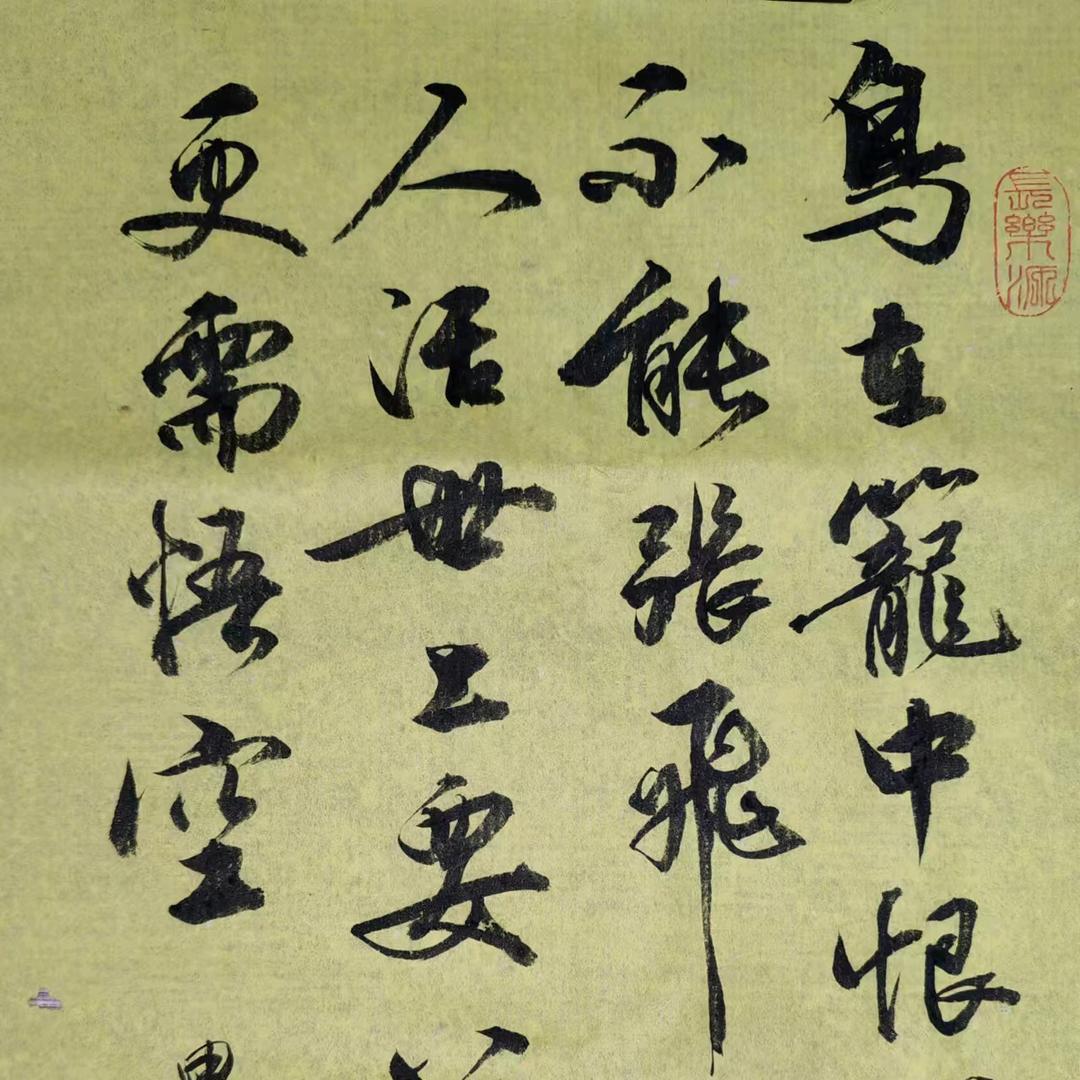 鳥在籠中恨
不能張飛
人活世上要
更需悟空
長樂